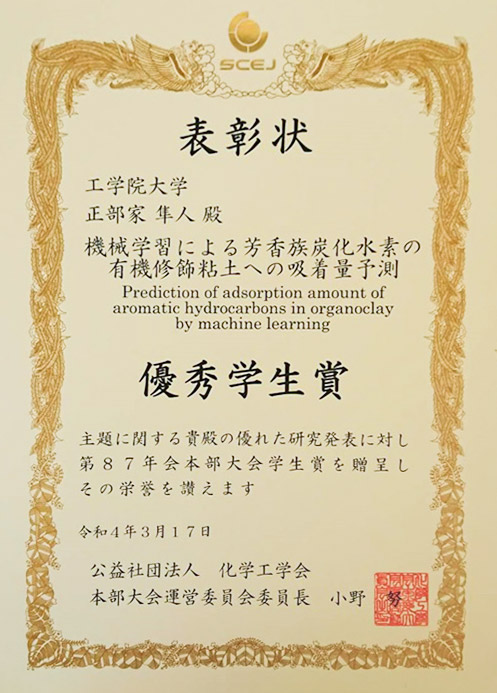 SCEJ
表彰状
工学院大学
正部家 隼人 殿
機械学習による芳香族炭化水素の
有機修飾粘土への吸着量予測
Prediction of adsorption amount of
aromatic hydrocarbons in organoclay
by machine learning
優秀学生賞
主題に関する貴殿の優れた研究発表に対し
第87年会本部大会学生賞を贈呈し
その栄誉を讃えます
令和4年3月17日
公益社団法人 化学工学会
本部大会運営委員会委員長 小野 努